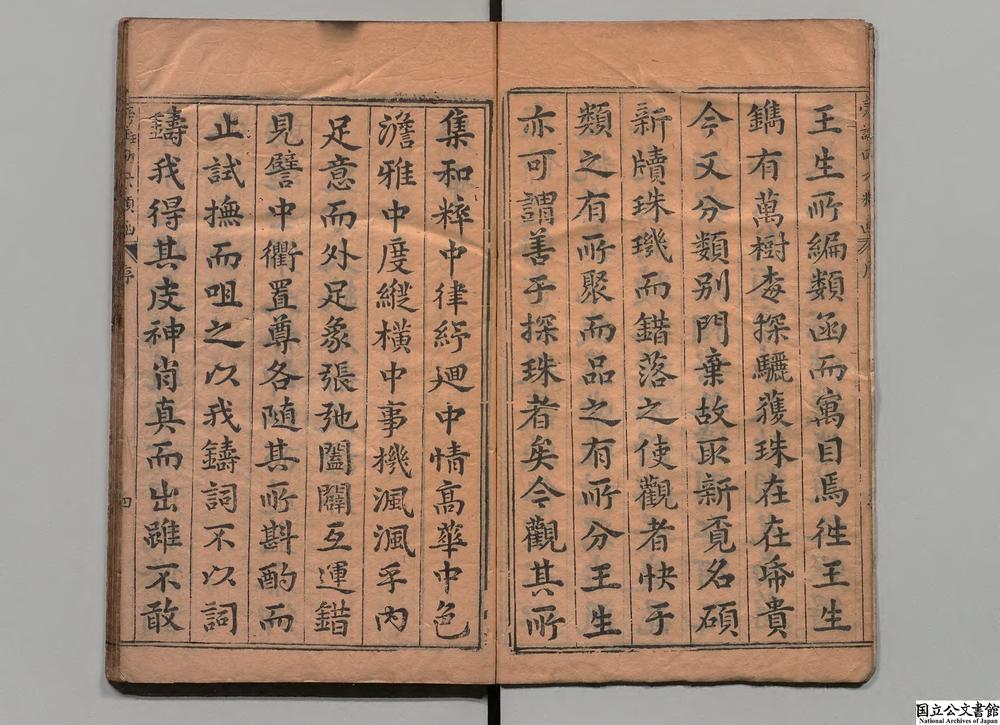 王生所編類函而寓目焉徃王生
鐫有萬樹𡊮探驪獲珠在在帋貴
今又分類別門棄故取新覓名碩
新牘珠璣而錯落之使觀者快于
類之有所聚而品之有所分王生
亦可謂善乎探珠者矣今觀其所
集和粹中律紆廻中情高華中色
澹雅中度縱橫中事機渢渢乎內
足意而外足象張弛闔闢互運錯
見譬中衢置尊各隨其所斟酌而
止試撫而咀之以我鑄詞不以詞
鑄我得其皮神肖真而出雖不敢
序
四
国立公文書館
National Archives of Japan